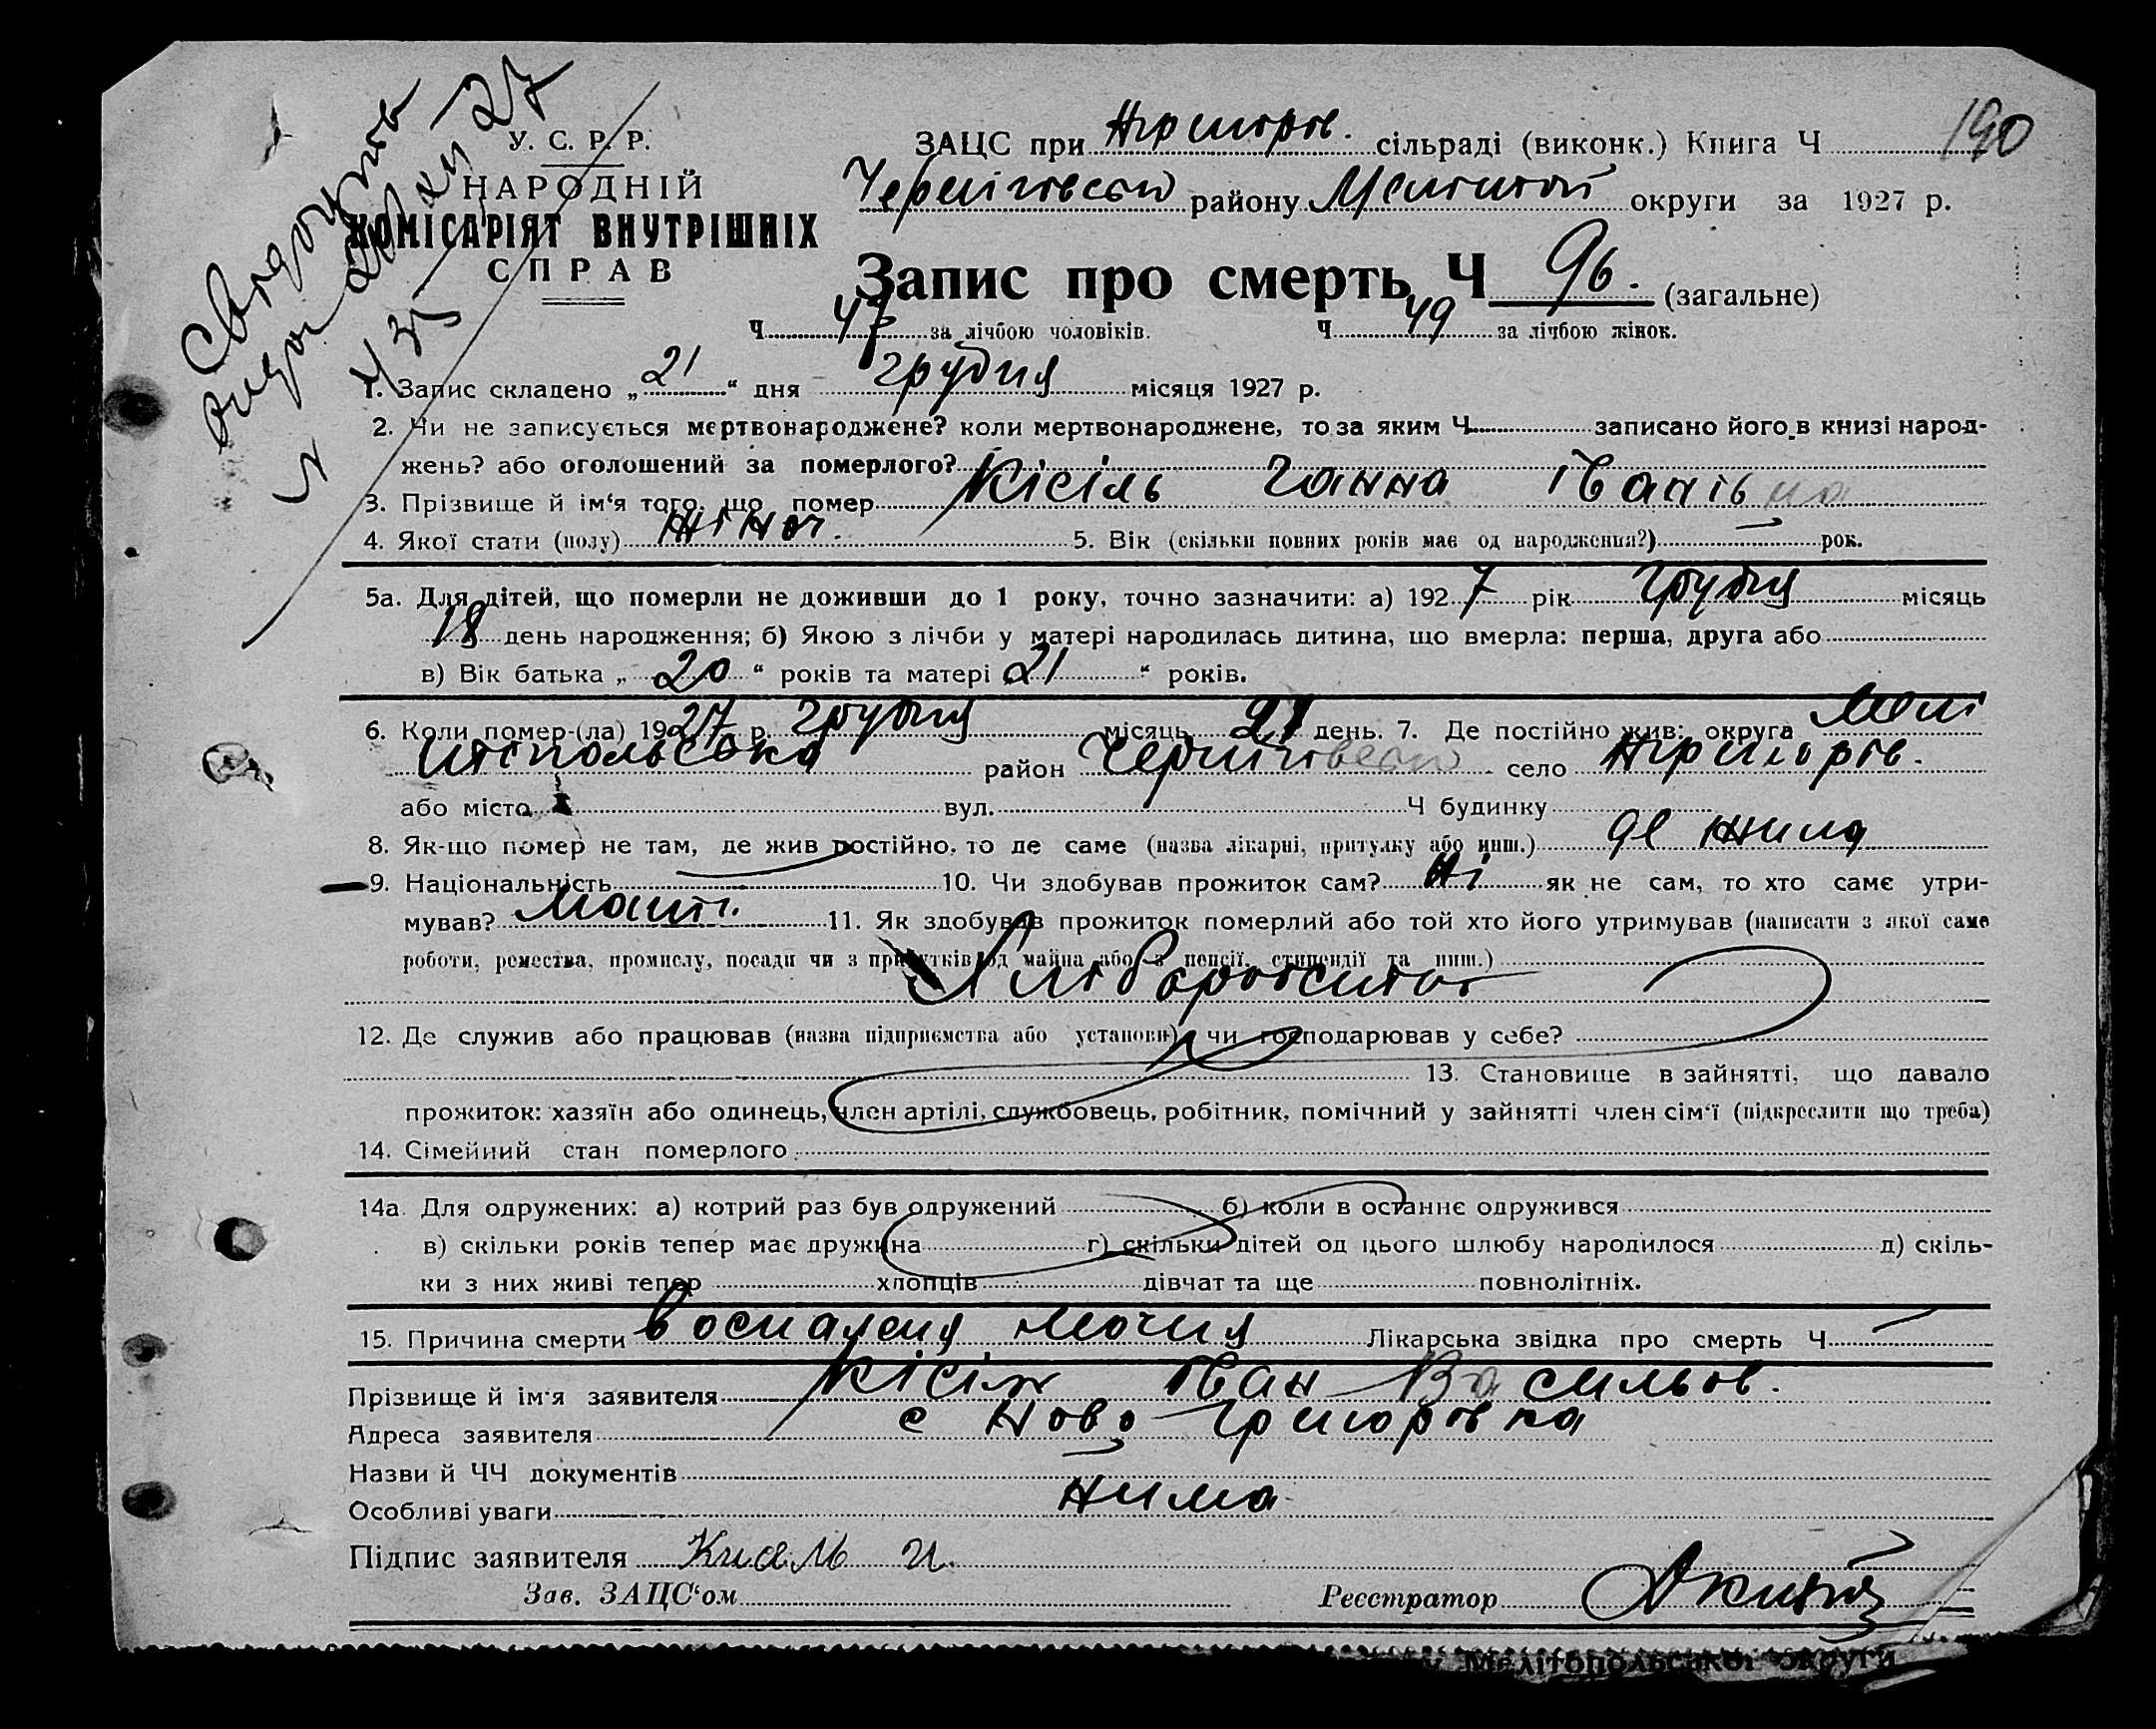 Свідоцтво
видан 21/XII 27
N 435
У. С. Р. Р.
НАРОДНІЙ
КОМІСАРІЯТ ВНУТРІШНІХ
СПРАВ
190
ЗАЦС при Нгригорів. сільраді (виконк.) Книга Ч
Чернігівськ району Мелітопол округи за 1927 р.
Запис про смерть Ч 96. (загальне)
Ч 47 за лічбою чоловіків. Ч 49 за лічбою жінок.
1. Запис складено „21“ дня грудня місяця 1927 р.
2. Чи не записується мертвонароджене? коли мертвонароджене, то за яким Ч записано його в книзі народ-
жень? або оголошений за померлого?
3. Прізвище й ім‘я того, що помер Кісіль Ганна Іванівна
4. Якої стати (полу) жіноч. 5. Вік (скільки повних років має од народження?) — рок.
5а. Для дітей, що померли не доживши до 1 року, точно зазначити: а) 1927 рік Грудня місяць
18 день народження; б) Якою з лічби у матері народилась дитина, що вмерла: перша, друга або
в) Вік батька „20“ років та матері 21“ років.
6. Коли помер-(ла) 1927 р. грудня місяць 21 день. 7. Де постійно жив: округа Мелі
топольська район Чернігівськ село Нгригорів.
або місто вул. Ч будинку
8. Як-що помер не там, де жив постійно, то де саме (назва лікарні, притулку або инш.) де жила
9. Національність 10. Чи здобував прожиток сам? Ні як не сам, то хто саме утри-
мував? Мати. 11. Як здобував прожиток померлий або той хто його утримував (написати з якої саме
роботи, ремества, промислу, посади чи з прибутків од майна або з пенсії, стипендії та инш.)
Хліборобством
12. Де служив або працював (назва підприємства або установи) чи господарював у себе?
13. Становище в зайнятті, що давало
прожиток: хазяїн або одинець, член артілі, службовець, робітник, помічний у зайнятті член сім‘ї (підкреслити що треба)
14. Сімейний стан померлого
14а. Для одружених: а) котрий раз був одружений б) коли в останнє одружився
в) скільки років тепер має дружина г) скільки дітей од цього шлюбу народилося д) скіль-
ки з них живі тепер хлопців дівчат та ще повнолітніх.
15. Причина смерти Воспаления Лекарська звідка про смерть Ч —
Прізвище й ім‘я заявителя Кісіль Іван Васильов.
Адреса заявителя с Ново Григорівка
Назви й ЧЧ документів
Особливі уваги Нима
Підпис заявителя Кисель И.
Зав. ЗАЦС‘ом Реєстратор
Мелітопольської округи